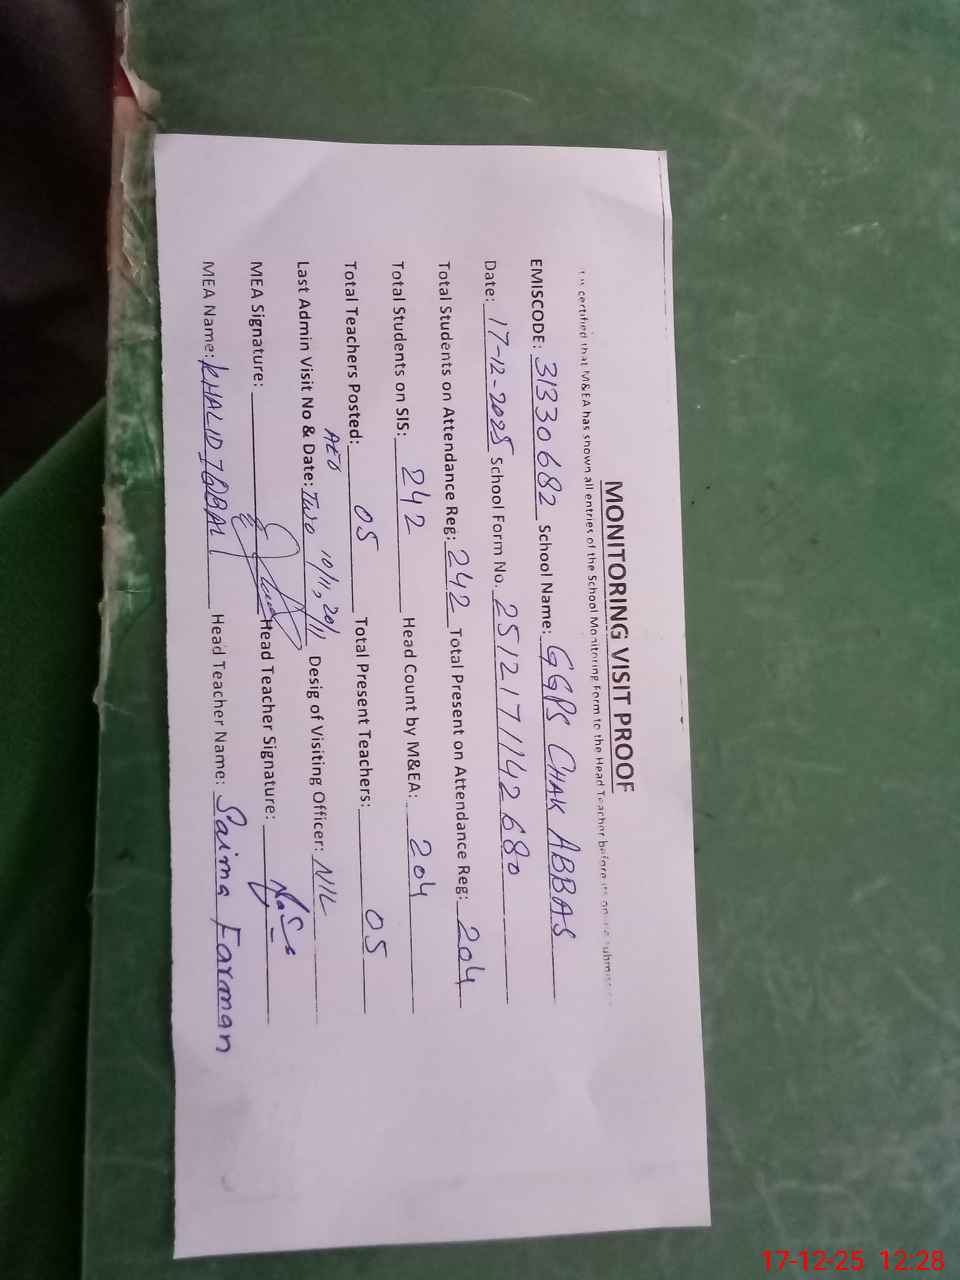 MONITORING VISIT PROOF
certified that M&EA has shown all entries of the School Monitoring Form to the Head Teacher before its submission
EMISCODE: 31330682 School Name: GGPS CHAK ABBAS
Date: 17-12-2025 School Form No. 2512171142680
Total Students on Attendance Reg: 242 Total Present on Attendance Reg: 204
Total Students on SIS: 242 Head Count by M&EA: 204
Total Teachers Posted: 05 Total Present Teachers: 05
AEO
Last Admin Visit No & Date: Two 10/11, 20/11 Desig of Visiting Officer: NIL
MEA Signature: Head Teacher Signature:
MEA Name: KHALID IQBAL Head Teacher Name: Saima Farman
17-12-25 12:28